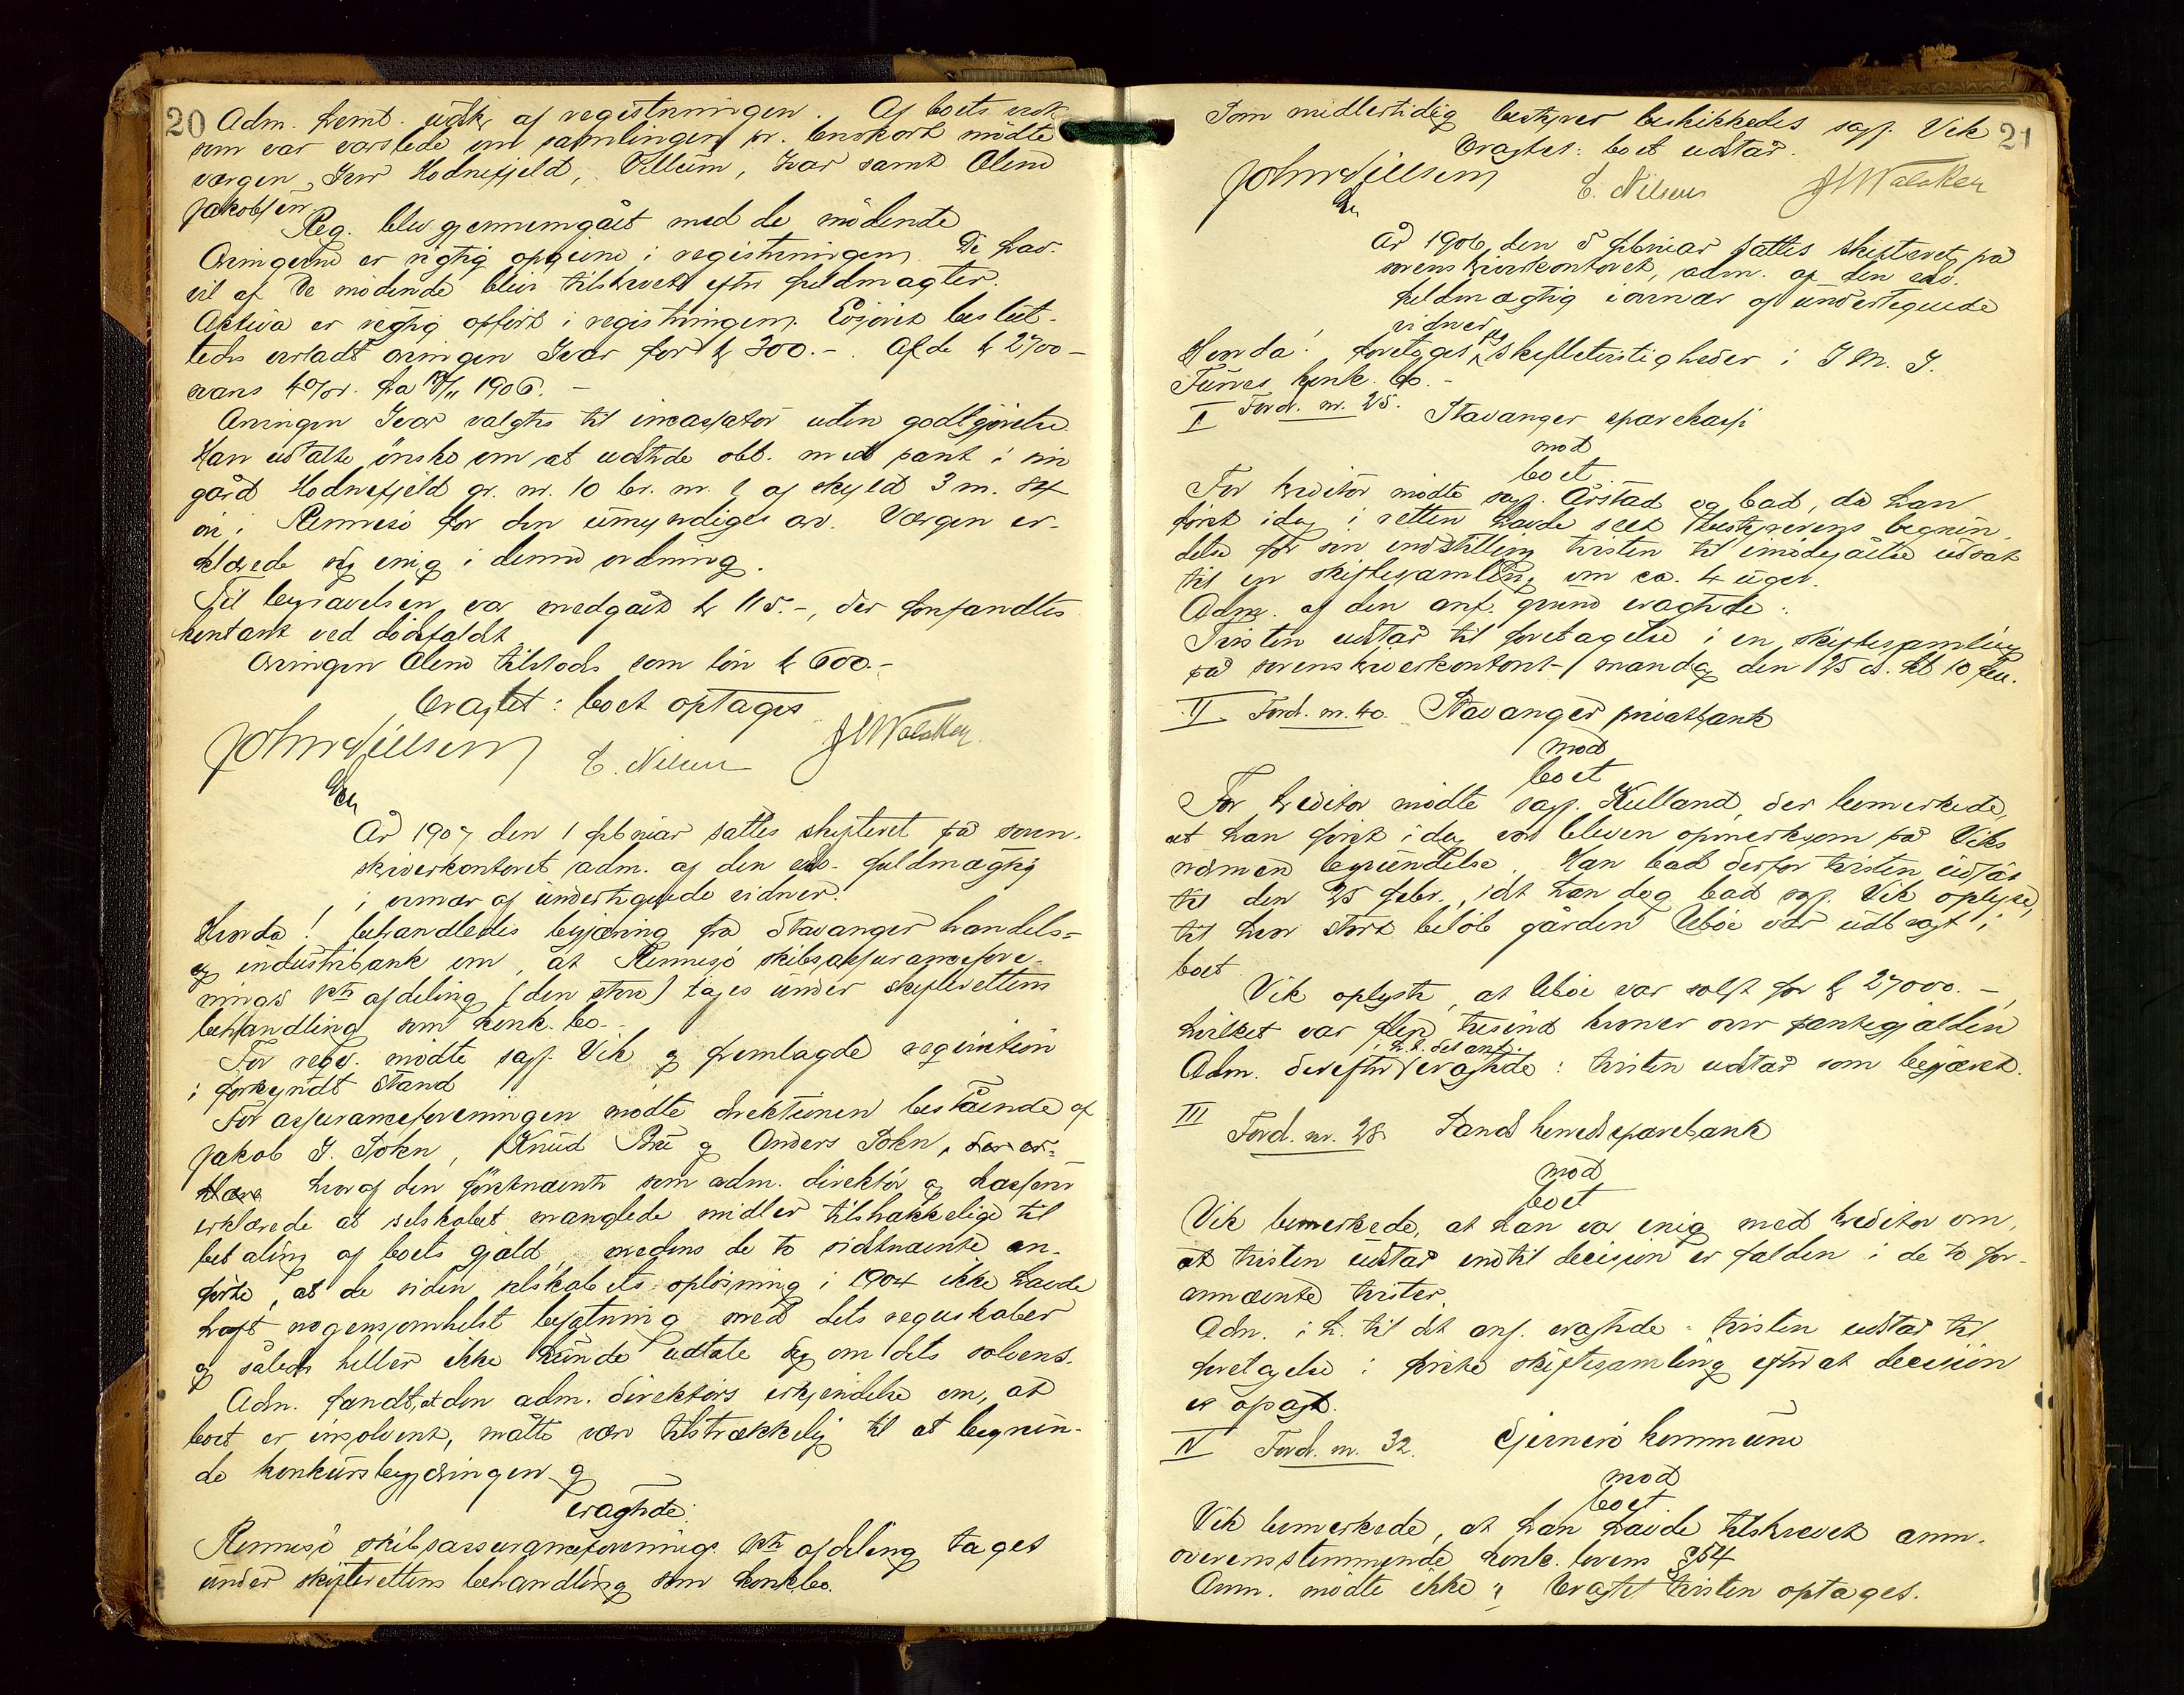 20 Adm. freml. udskr af registreringen. Af boets vedk.
som var varslede om samlingen pr. brevkort mødte
værgen Iver Hodnefjeld, Villum, Ivar samt Olene
Jakobsen.
Reg. blev gjennemgået med de mødende
Arvingerne er rigtig opgivne i registreringen. De frav.
vil af de mødende blive tilskrevet efter fuldmagter.
Aktiva er rigtig opført i registreringen. Løsøret beslut-
tedes overladt arvingen Ivar for kr 300.-. Af de kr 2700-
svares 4% r. fra 1906.-
Arvingen Ivar valgtes til incassator uden godtgjørelse.
Han udtalte ønske om at udstede obl. med pant i sin
gård Hodnefjeld gr. nr. 10 br. nr. 1 af skyld 3 m. 84
øre i Rennesø for den umyndiges arv. Værgen er-
klærede sig enig i denne ordning.
Til begravelsen var medgået kr 115.-, der forefandtes
kontant ved dødsfaldet.
Arvingen Olene tilstodes som løn kr 600.-
Eragtet: boet optages
John Nilssen E. Nilsen
År 1907 den 1 februar sattes skifteret på soren-
skriverkontoret adm. af den edsv. fuldmægtig
i nærvær af undertegnede vidner.
Hvorda! behandledes begjæring fra Stavanger handels-
og industribank om, at Rennesø skibsassuranceforen-
nings afdeling (den store) tages under skifterettens
behandling som konk.bo.-
For rekv. mødte sagf. Vik og fremlagde rekvisition
i forkyndt stand
For assuranceforeningen mødte direktionen bestående af
Jakob J. Sokn, Knud Bru og Anders Sokn, der er-
klære hvoraf den førstnævnte som adm. direktør og kasserer
erklærede at selskabet manglede midler tilstrækkelige til
betaling af boets gjæld, medens de to sidstnævnte an-
førte, at de siden selskabets opløsning i 1904 ikke havde
havt nogensomhelst befatning med dets regnskaber
og således heller ikke kunde udtale sig om dets solvens.
Adm. fandt, at den adm. direktørs erkjendelse om, at
boet er insolvent, måtte være tilstrækkelig til at begrun-
de konkursbegjæringen og
eragtede:
Rennesø skibsassuranceforenings afdeling tages
under skifterettens behandling som konkbo.
Som midlertidig bestyrer beskikkedes sagf. Vik 21
Eragtet: boet udstår.
John Nilssen E. Nilsen
År 1906, den 5 februar sattes skifteret på
sorenskriverkontoret, adm. af den edsv.
fuldmægtig i nærvær af undertegnede
vidner
Hvorda! foretages skiftetvistigheder i J. M. J.
Furnes konk. bo.-
I Ford. nr. 25. Stavanger sparekasse
mod
boet
For kreditor mødte sagf. Årstad og bad, da han
først idag i retten havde seet bestyrerens begrun-
delse for sin indstilling tvisten til imødegåelse udsat
til en skiftesamling om ca. 4 uger.
Adm. af den anf. grund eragtede:
Tvisten udstår til foretagelse i en skiftesamling
på sorenskriverkontoret mandag den 25 ds. kl 10 fm.
II Ford. nr. 40. Stavanger privatbank
mod
boet
For kreditor mødte sagf. Kulland, der bemerkede,
at han først idag var bleven opmerksom på Viks
nærmere begrundelse. Han bad derfor tvisten udstå
til den 25 febr., idet han dog bad sagf. Vik oplyse,
til hvor stort beløb gården Ubøe var udbragt i
boet
Vik oplyste, at Ubøe var solgt for kr 27000.-,
hvilket var flere tusind kroner over pantegjælden
i h. t. det anf.
Adm. derefter eragtede: tvisten udstår som begjæret.
III Ford. nr. 28. Sands herreds sparebank
mod
boet
Vik bemerkede, at han var enig med kreditor om,
at tvisten udstår indtil decision er falden i de to for-
annævnte tvister.
Adm. i h. til det anf. eragtede: tvisten udstår til
foretagelse i første skiftesamling efter at decision
er afsagt.
IV Ford. nr. 32. Sjernerø kommune
mod
boet
Vik bemerkede, at han havde tilskrevet anm.
overensstemmende konk. lovens § 54
Anm. mødte ikke. Eragtet tvisten optages.